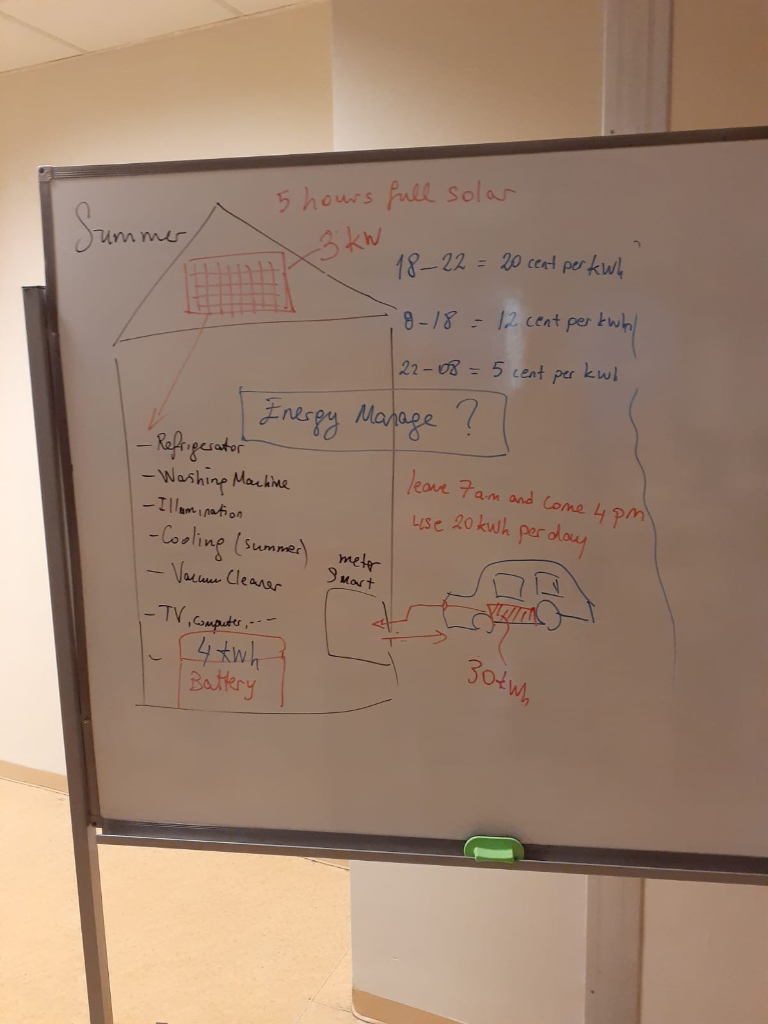 5 hours full solar
Summer
3 kW
18-22 = 20 cent per kwh
8-18 = 12 cent per kwh
22-08 = 5 cent per kwh
Energy Manage ?
- Refrigerator
- Washing Machine
- Illumination
- Cooling (summer)
- Vacuum Cleaner
- TV, computer, ---
-
leave 7am and come 4 pm
use 20 kwh per day
meter
Smart
4 kwh
Battery
30 kwh